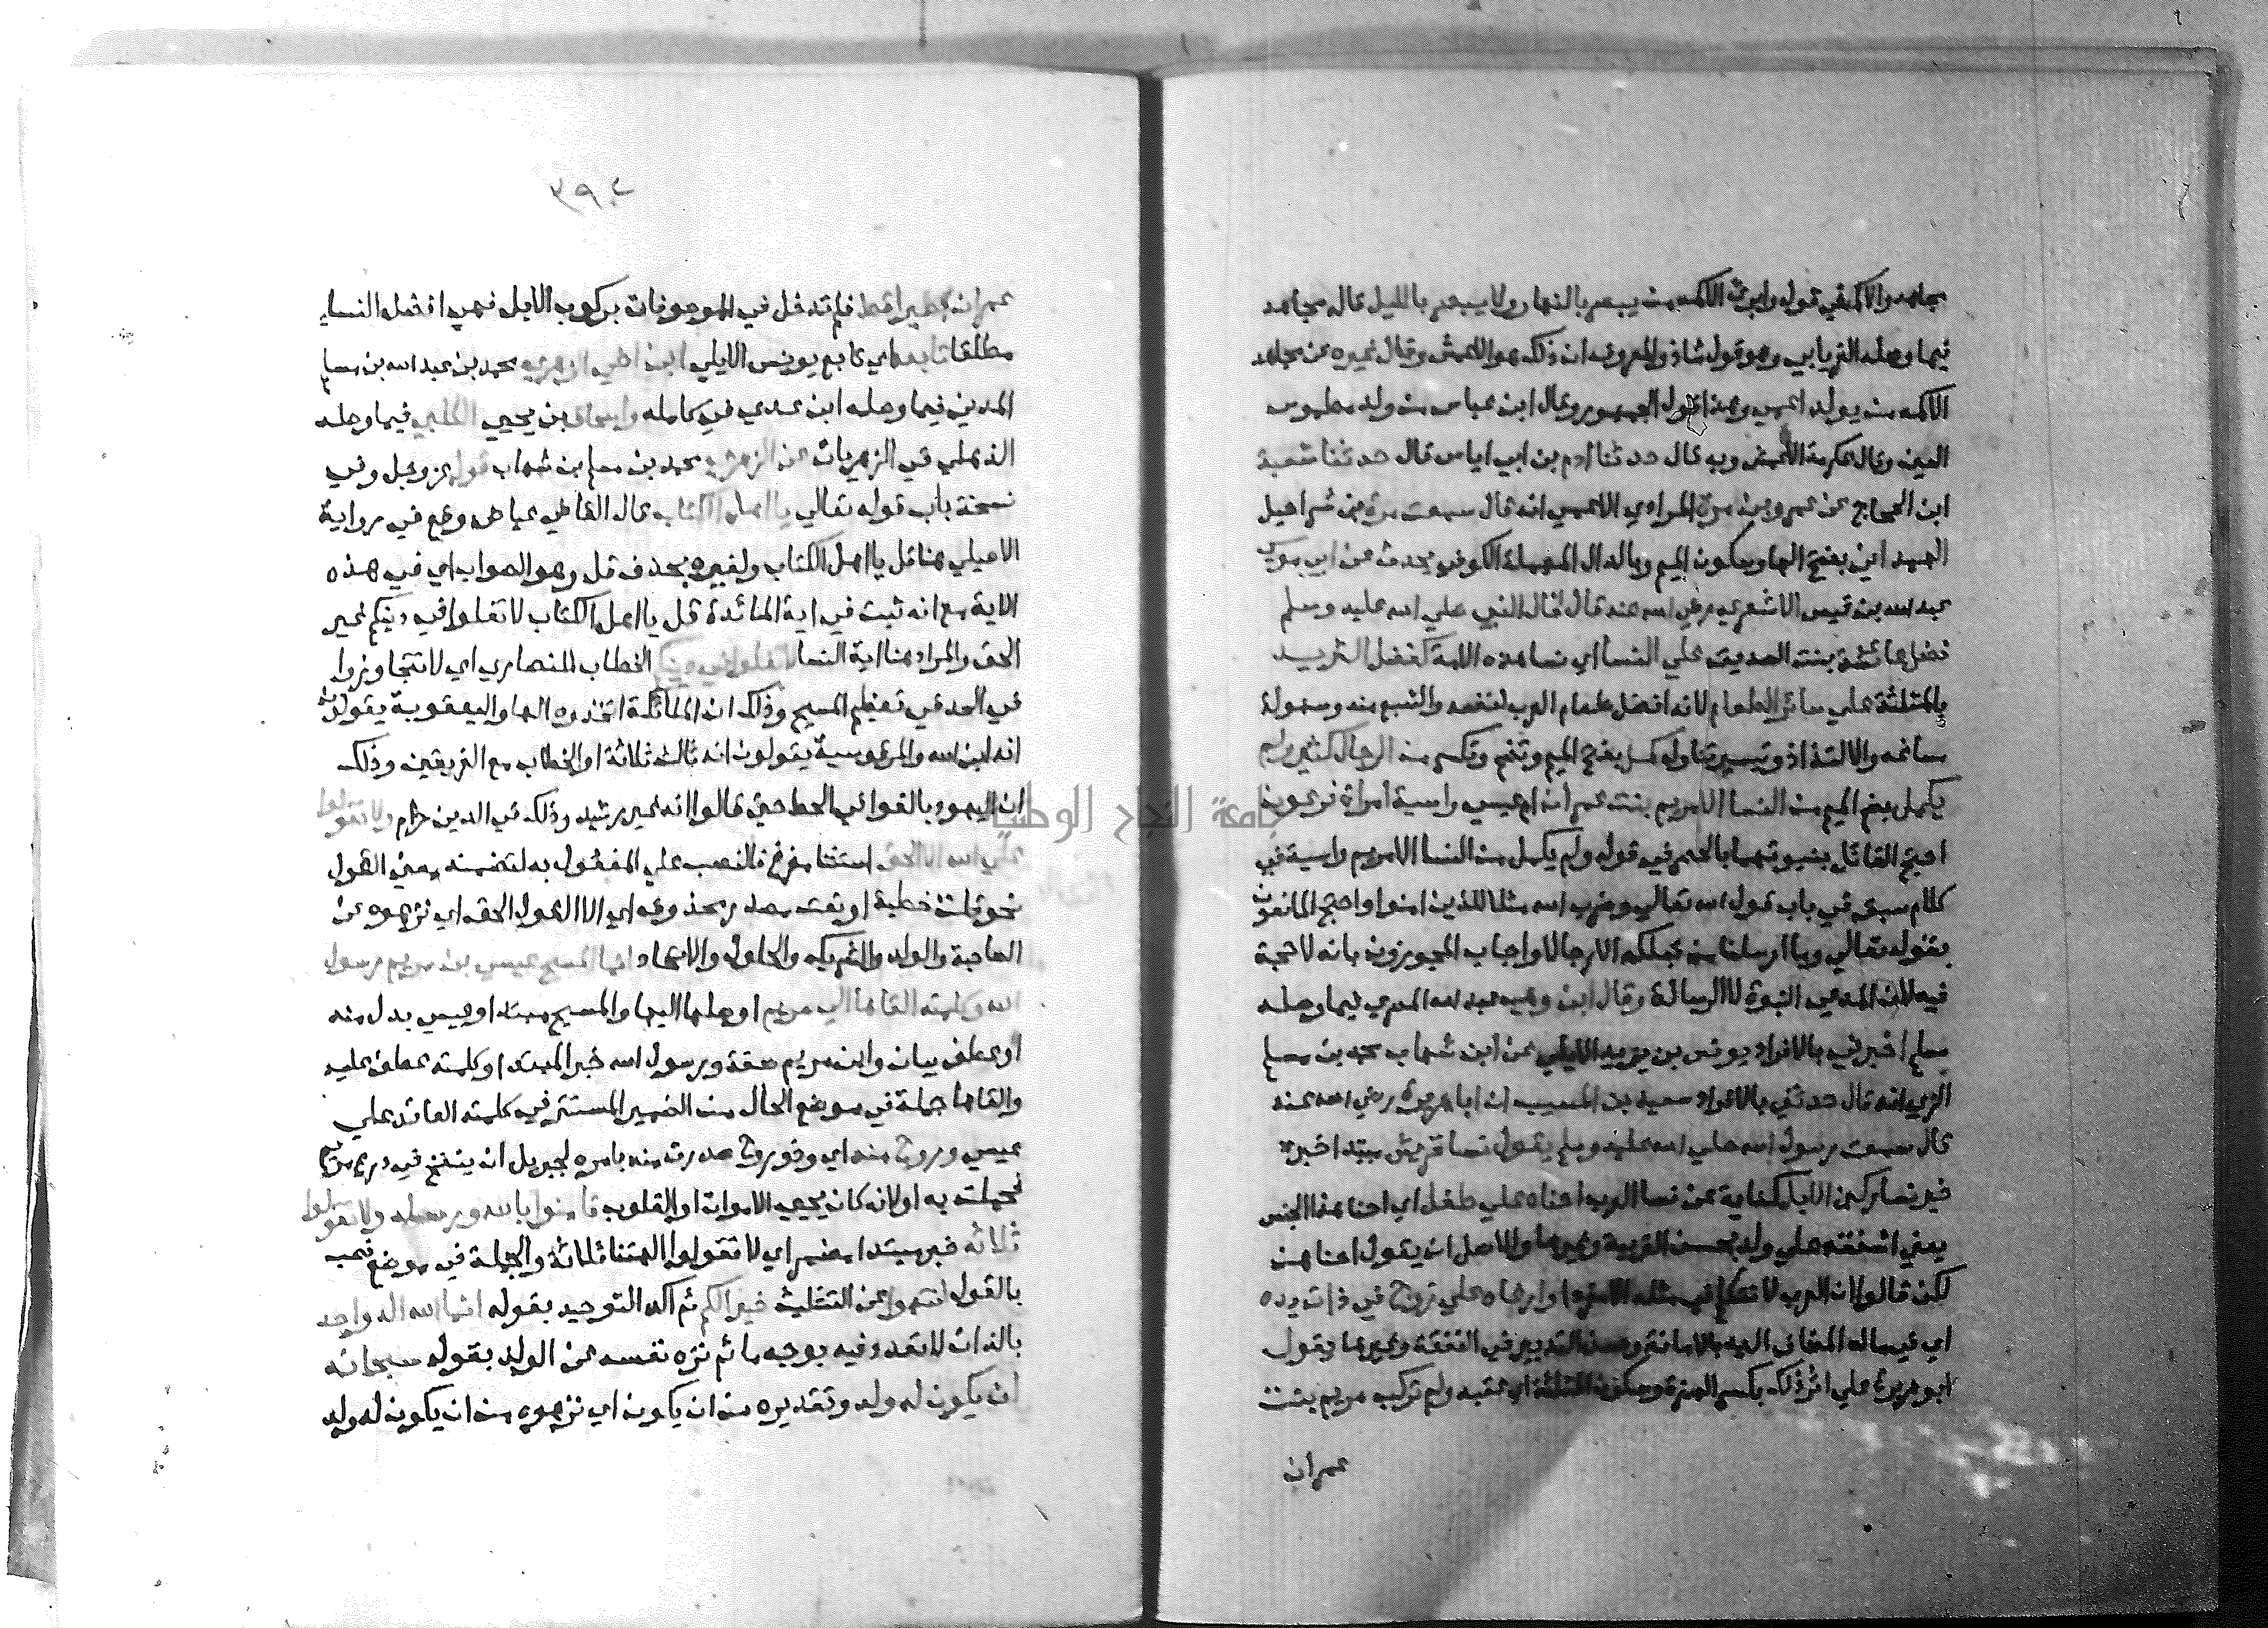 مجاهد والاكمه في قوله وابرئ الاكمه من يبصر بالنهار ولا يبصر بالليل قاله مجاهد
فيما وصله الفريابي وهو قول شاذ والمعروف ان ذلك هو الاعمش وقال غيره عن مجاهد
الاكمه من يولد اعمي وهذا قول الجمهور وقال ابن عباس من ولد مطموس
العين وقال عكرمة الاعمش وبه قال حدثنا ادم بن ابي اياس قال حدثنا شعبة
ابن الحجاج عن عمرو بن مرة المرادي الاعمي انه قال سمعت مرة بن شراحيل
الهمداني بفتح الها وسكون الميم وبالدال المهملة الكوفي يحدث عن ابي موسي
عبد الله بن قيس الاشعري رضي الله عنه قال قال النبي صلي الله عليه وسلم
فضل عائشة بنت الصديق علي النسا اي نسا هذه الامة كفضل الثريد
بالمثلثة علي سائر الطعام لانه افضل طعام العرب لنفعه والشبع منه وسهولة
مساغه والالتذاذ وتيسير تناوله كمل بفتح الميم وتضم وتكسر من الرجال كثير ولم
يكمل بضم الميم من النسا الا مريم بنت عمران ام عيسي واسية امراة فرعون
احتج القائل بنبوتهما بالحصر في قوله ولم يكمل من النسا الا مريم واسية في
كلام سبق في باب قول الله تعالي وضرب الله مثلا للذين امنوا واحتج المانعون
بقوله تعالي وما ارسلنا من قبلك الا رجالا واجاب المجوزون بانه لا حجة
فيه لان المدعي النبوة لا الرسالة وقال ابن وهب عبد الله المصري فيما وصله
مسلم اخبرني بالافراد يونس بن يزيد الايلي عن ابن شهاب محمد بن مسلم
الزهري انه قال حدثني بالافراد سعيد بن المسيب ان ابا هريرة رضي الله عنه
قال سمعت رسول الله صلي الله عليه وسلم يقول نسا قريش مبتدا خبره
خير نسا ركبن الابل كناية عن نسا العرب احناه علي طفل اي احنا هذا الجنس
يعني اشفقه علي ولد بحسن التربية وغيرها والاصل ان يقول احناهن
لكن قالوا ان العرب لا تتكلم في مثله الا مفردا وارعاه علي زوج في ذات يده
اي في ماله المضاف اليه بالامانة وحسن التدبير في النفقة وغيرها وقول
ابو هريرة علي اثر ذلك بكسر الهمزة وسكون المثلثة اي عقبه ولم تركب مريم بنت
عمران
٣٩٠٢
عمران بعيرا قط فلم تدخل في الموصوفات بركوب الابل فهي افضل النسا
مطلقا تابعه اي تابع يونس الايلي ابن اخي الزهري محمد بن عبد الله بن مسلم
المدني فيما وصله ابن عدي في كامله واسحاق بن يحيي الكلبي فيما وصله
الذهلي في الزهريات عن الزهري محمد بن مسلم ابن شهاب قوله عز وجل وفي
نسخة باب قوله تعالي يا اهل الكتاب قال القاضي عياض وقع في رواية
الاصيلي هنا قل يا اهل الكتاب ولغيره بحذف قل وهو الصواب اي في هذه
الاية مع انه ثبت في اية المائدة قل يا اهل الكتاب لا تغلوا في دينكم غير
الحق والمراد هنا اية النسا لا تغلوا في دينكم الخطاب للنصاري اي لا تتجاوزوا
في الحد في تعظيم المسيح وذلك ان الملكانية اتخذوه الها واليعقوبية يقولون
انه ابن الله والمرقوسية يقولون انه ثالث ثلاثة او الخطاب مع الفريقين وذلك
ان اليهود بالغوا في الحط حتي قالوا انه غير رشيد وذلك في الدين حرام ولا تقولوا
علي الله الا الحق استثنا مفرغ فالنصب علي المفعول به لتضمنه معني القول
نحو قلت خطبة او نعت مصدر محذوف اي الا القول الحق اي نزهوه عن
الصاحبة والولد والشريك والحلول والاتحاد انما المسيح عيسي بن مريم رسول
الله وكلمته القاها الي مريم اوصلها اليها والمسيح مبتدا وعيسي بدل منه
او عطف بيان وابن مريم صفة ورسول الله خبر المبتدا وكلمته عطف عليه
والقاها جملة في موضع الحال من الضمير المستتر في كلمته العائد علي
عيسي وروح منه اي وذو روح صدرت منه بامره لجبريل ان ينفخ في درع مريم
فحملت به او لانه كان يحيي الاموات او القلوب فامنوا بالله ورسله ولا تقولوا
ثلاثه خبر مبتدا مضمر اي لا تقولوا الهتنا ثلاثة والجملة في موضع نصب
بالقول انتهوا عن التثليث خيرا لكم ثم اكد التوحيد بقوله انما الله اله واحد
بالذات لا تعدد فيه بوجه ما ثم نزه نفسه عن الولد بقوله سبحانه
ان يكون له ولد وتقديره من ان يكون اي نزهوه من ان يكون له ولد
جامعة النجاح الوطنية